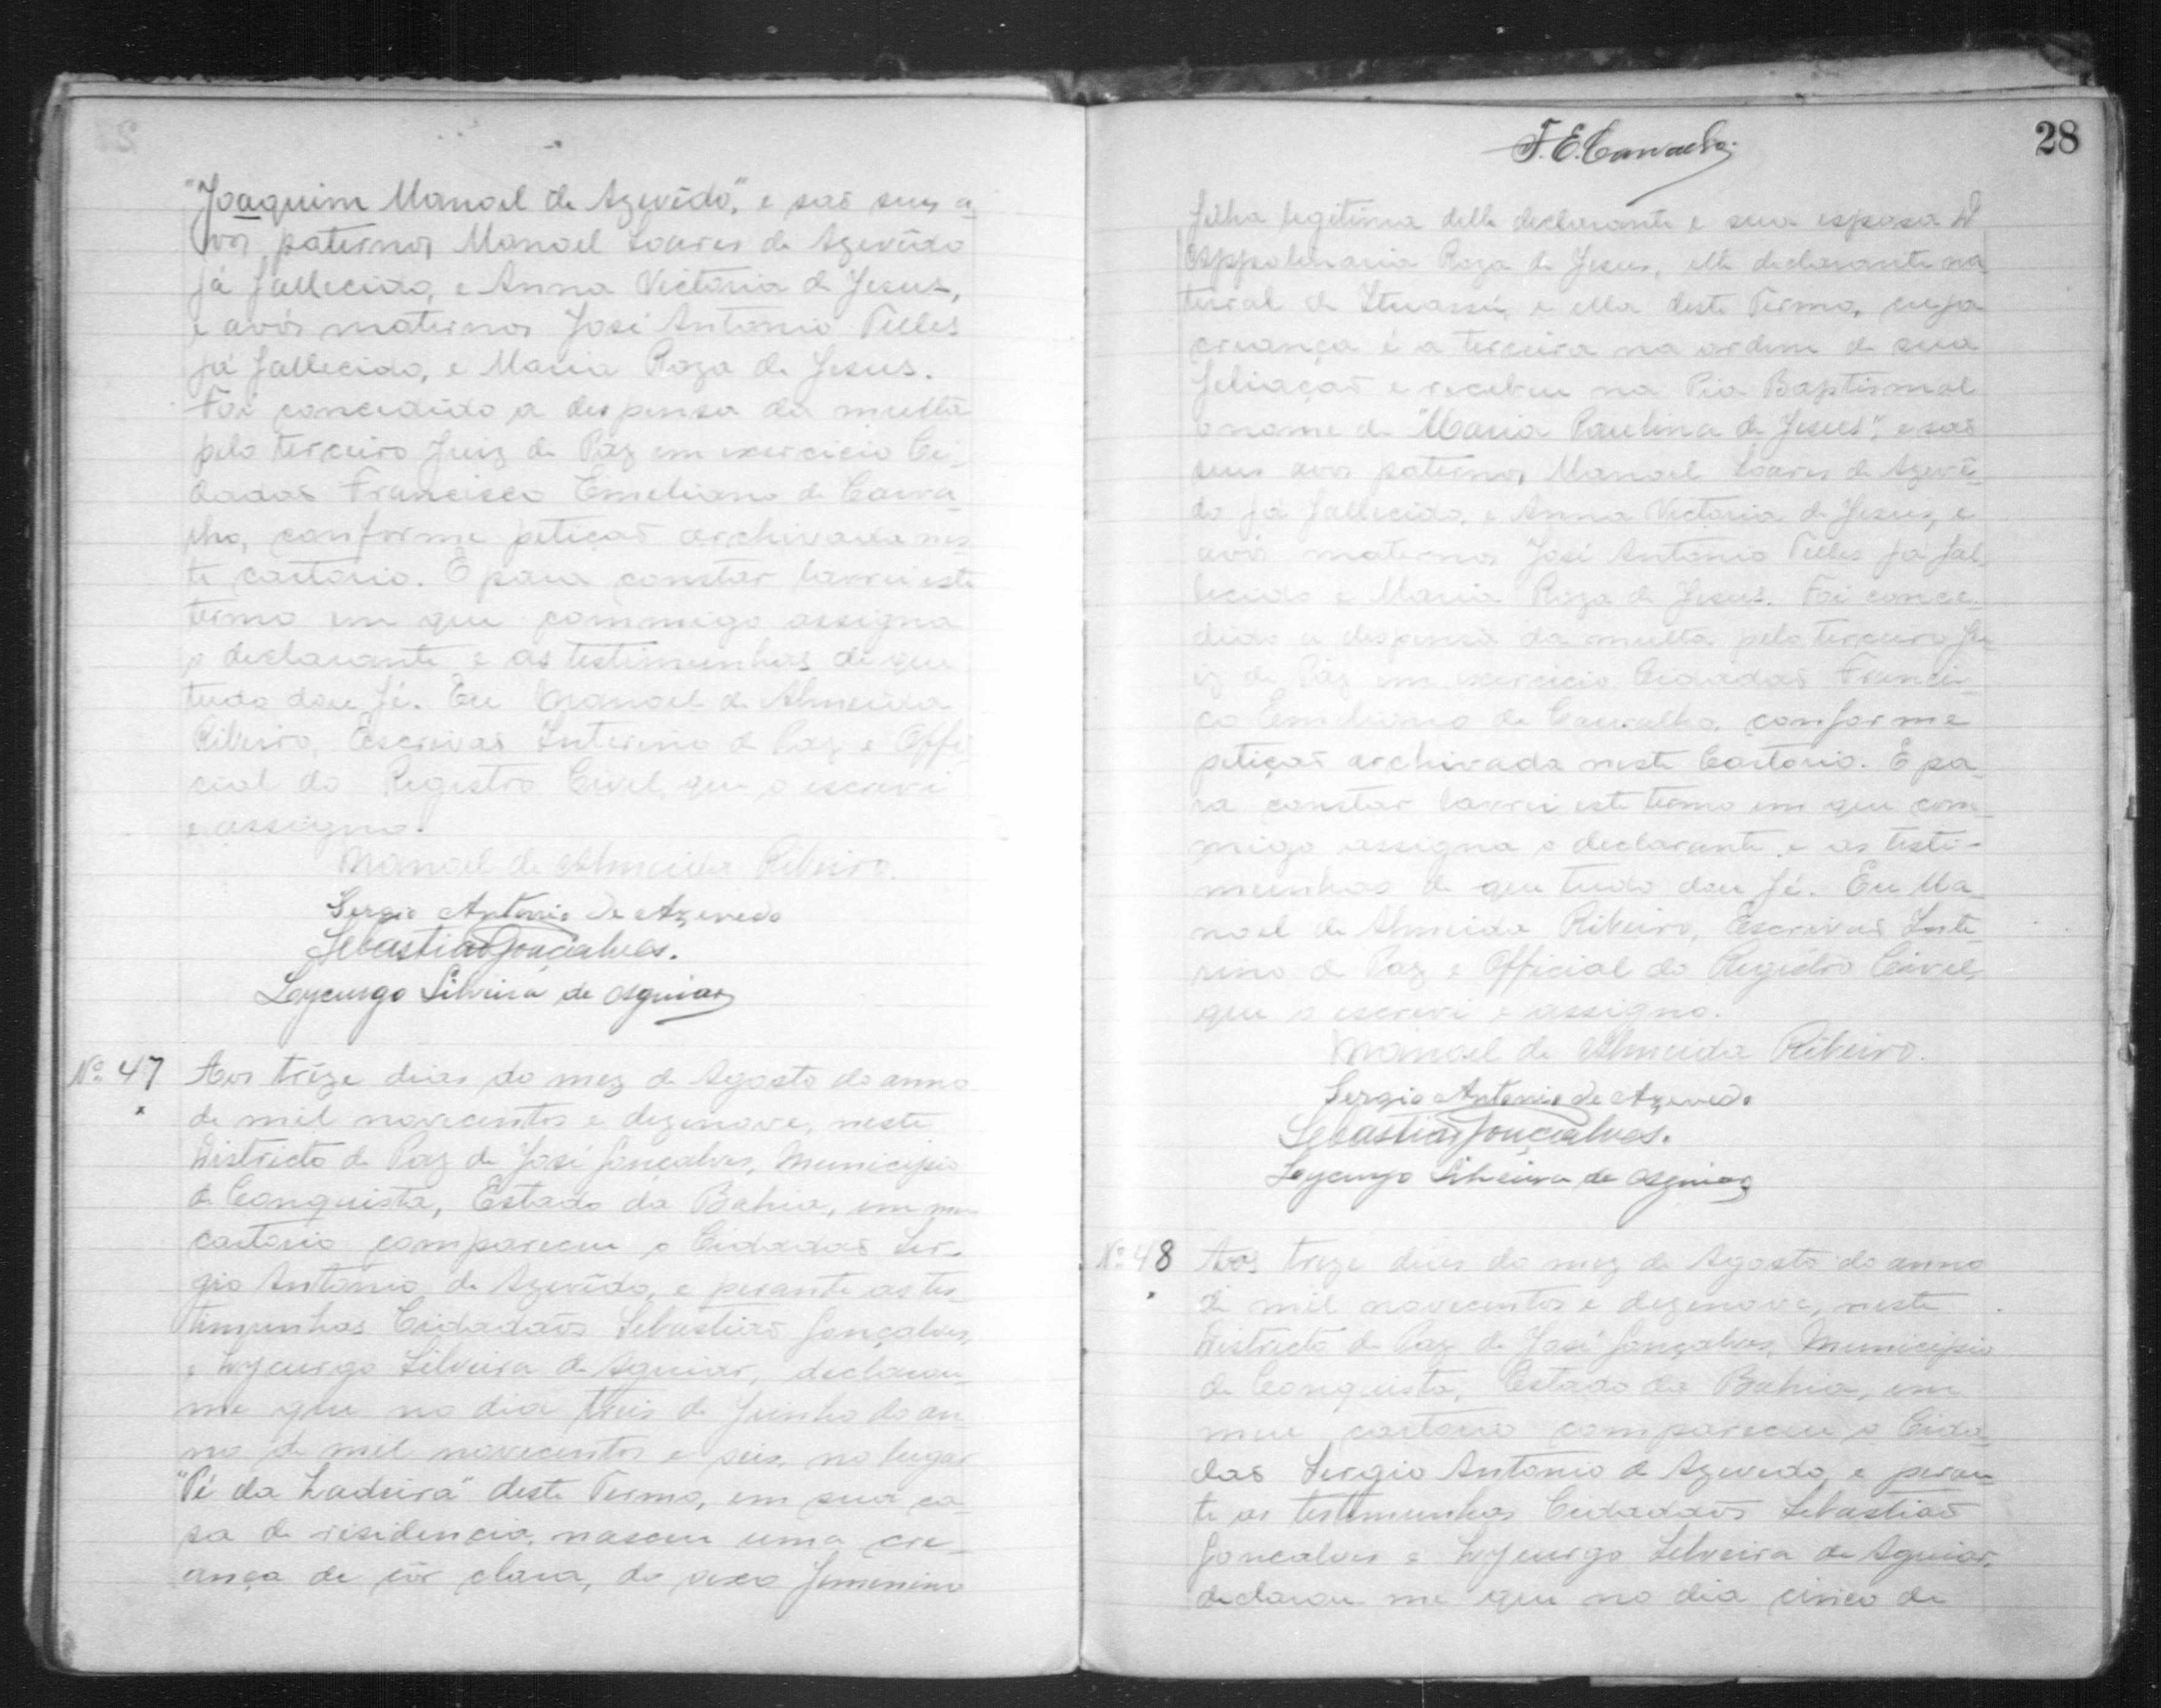 "Joaquim Manoel de Azevêdo", e saõ seus a-
vos paternos Manoel Soares de Azevêdo
já fallecido, e Anna Victoria de Jesus,
e avós maternos José Antonio Telles
já fallecido, e Maria Roza de Jesus.
Foi concedido a despensa da multa
pelo terceiro Juiz de Páz em exercicio Ci-
dadaõ Francisco Emeliano de Carva-
lho, conforme petiçaõ archivada nes-
te cartorio. E para constar lavrei este
termo em que commigo assigna
o declarante e as testimunhas de que
tudo dou fé. Eu Manoel de Almeida
Ribeiro, Escrivaõ Interino de Paz e Offi-
cial do Registro Civel, que o escrevi
e assigno.
Manoel de Almeida Ribeiro.
Sergio Antonio de Azevedo
Sebastiaõ Gonçalves.
Lycurgo Silveira de Aguiar
Nº 47 Aos trêze dias do mez de Agosto do anno
de mil novecentos e dezenove, neste
Districto de Paz de José Gonçalves, Municipio
de Conquista, Estado da Bahia, em meu
cartorio compareceu o Cidadaõ Ser-
gio Antonio de Azevêdo, e perante as tes-
timunhas Cidadaõs Sebastiaõ Gonçalves,
e Lycurgo Silveira de Aguiar, declarou-
me que no dia treis de Junho do an-
no de mil novecentos e seis, no lugar
"Pé da Ladeira" deste Termo, em sua ca-
sa de residencia, nasceu uma cre-
ança de côr clara, do sexo femenino
28
F. E. Carvalho
filha legitima delle declarante e sua esposa D.
Appolinaria Roza de Jesus, elle declarante na
tural de Ituassú, e ella deste Termo, cuja
creança é a terceira na ordem de sua
feliaçaõ e recebeu na Pia Baptismal
o nome de "Maria Paulina de Jesus", e saõ
seus avos paternos Manoel Soares de Azevê-
do já fallecido, e Anna Victoria de Jesus, e
avós maternos José Antonio Telles já fal-
lecido e Maria Roza de Jesus. Foi conce-
dido a despensa da multa pelo terceiro Ju-
iz de Páz em exercicio Cidadaõ Francis-
co Emeliano de Carvalho, conforme
petiçaõ archivada neste Cartorio. E pa-
ra constar lavrei este termo em que com-
migo assigna o declarante e as testi-
munhas de que tudo dou fé. Eu Ma-
noel de Almeida Ribeiro, Escrivaõ Inte-
rino de Paz e Official do Registro Civel,
que o escrevi e assigno.
Manoel de Almeida Ribeiro.
Sergio Antonio de Azevedo
Sebastiaõ Gonçalves.
Lycurgo Silveira de Aguiar
Nº 48 Aos treze dias do mez de Agosto do anno
de mil novecentos e dezenove, neste
Districto de Paz de José Gonçalves, Municipio
de Conquista, Estado da Bahia, em
meu cartorio compareceu o Cida-
daõ Sergio Antonio de Azevedo, e peran-
te as testimunhas Cidadaõs Sebastiaõ
Goncalves e Lycurgo Silveira de Aguiar,
declarou me que no dia cinco de